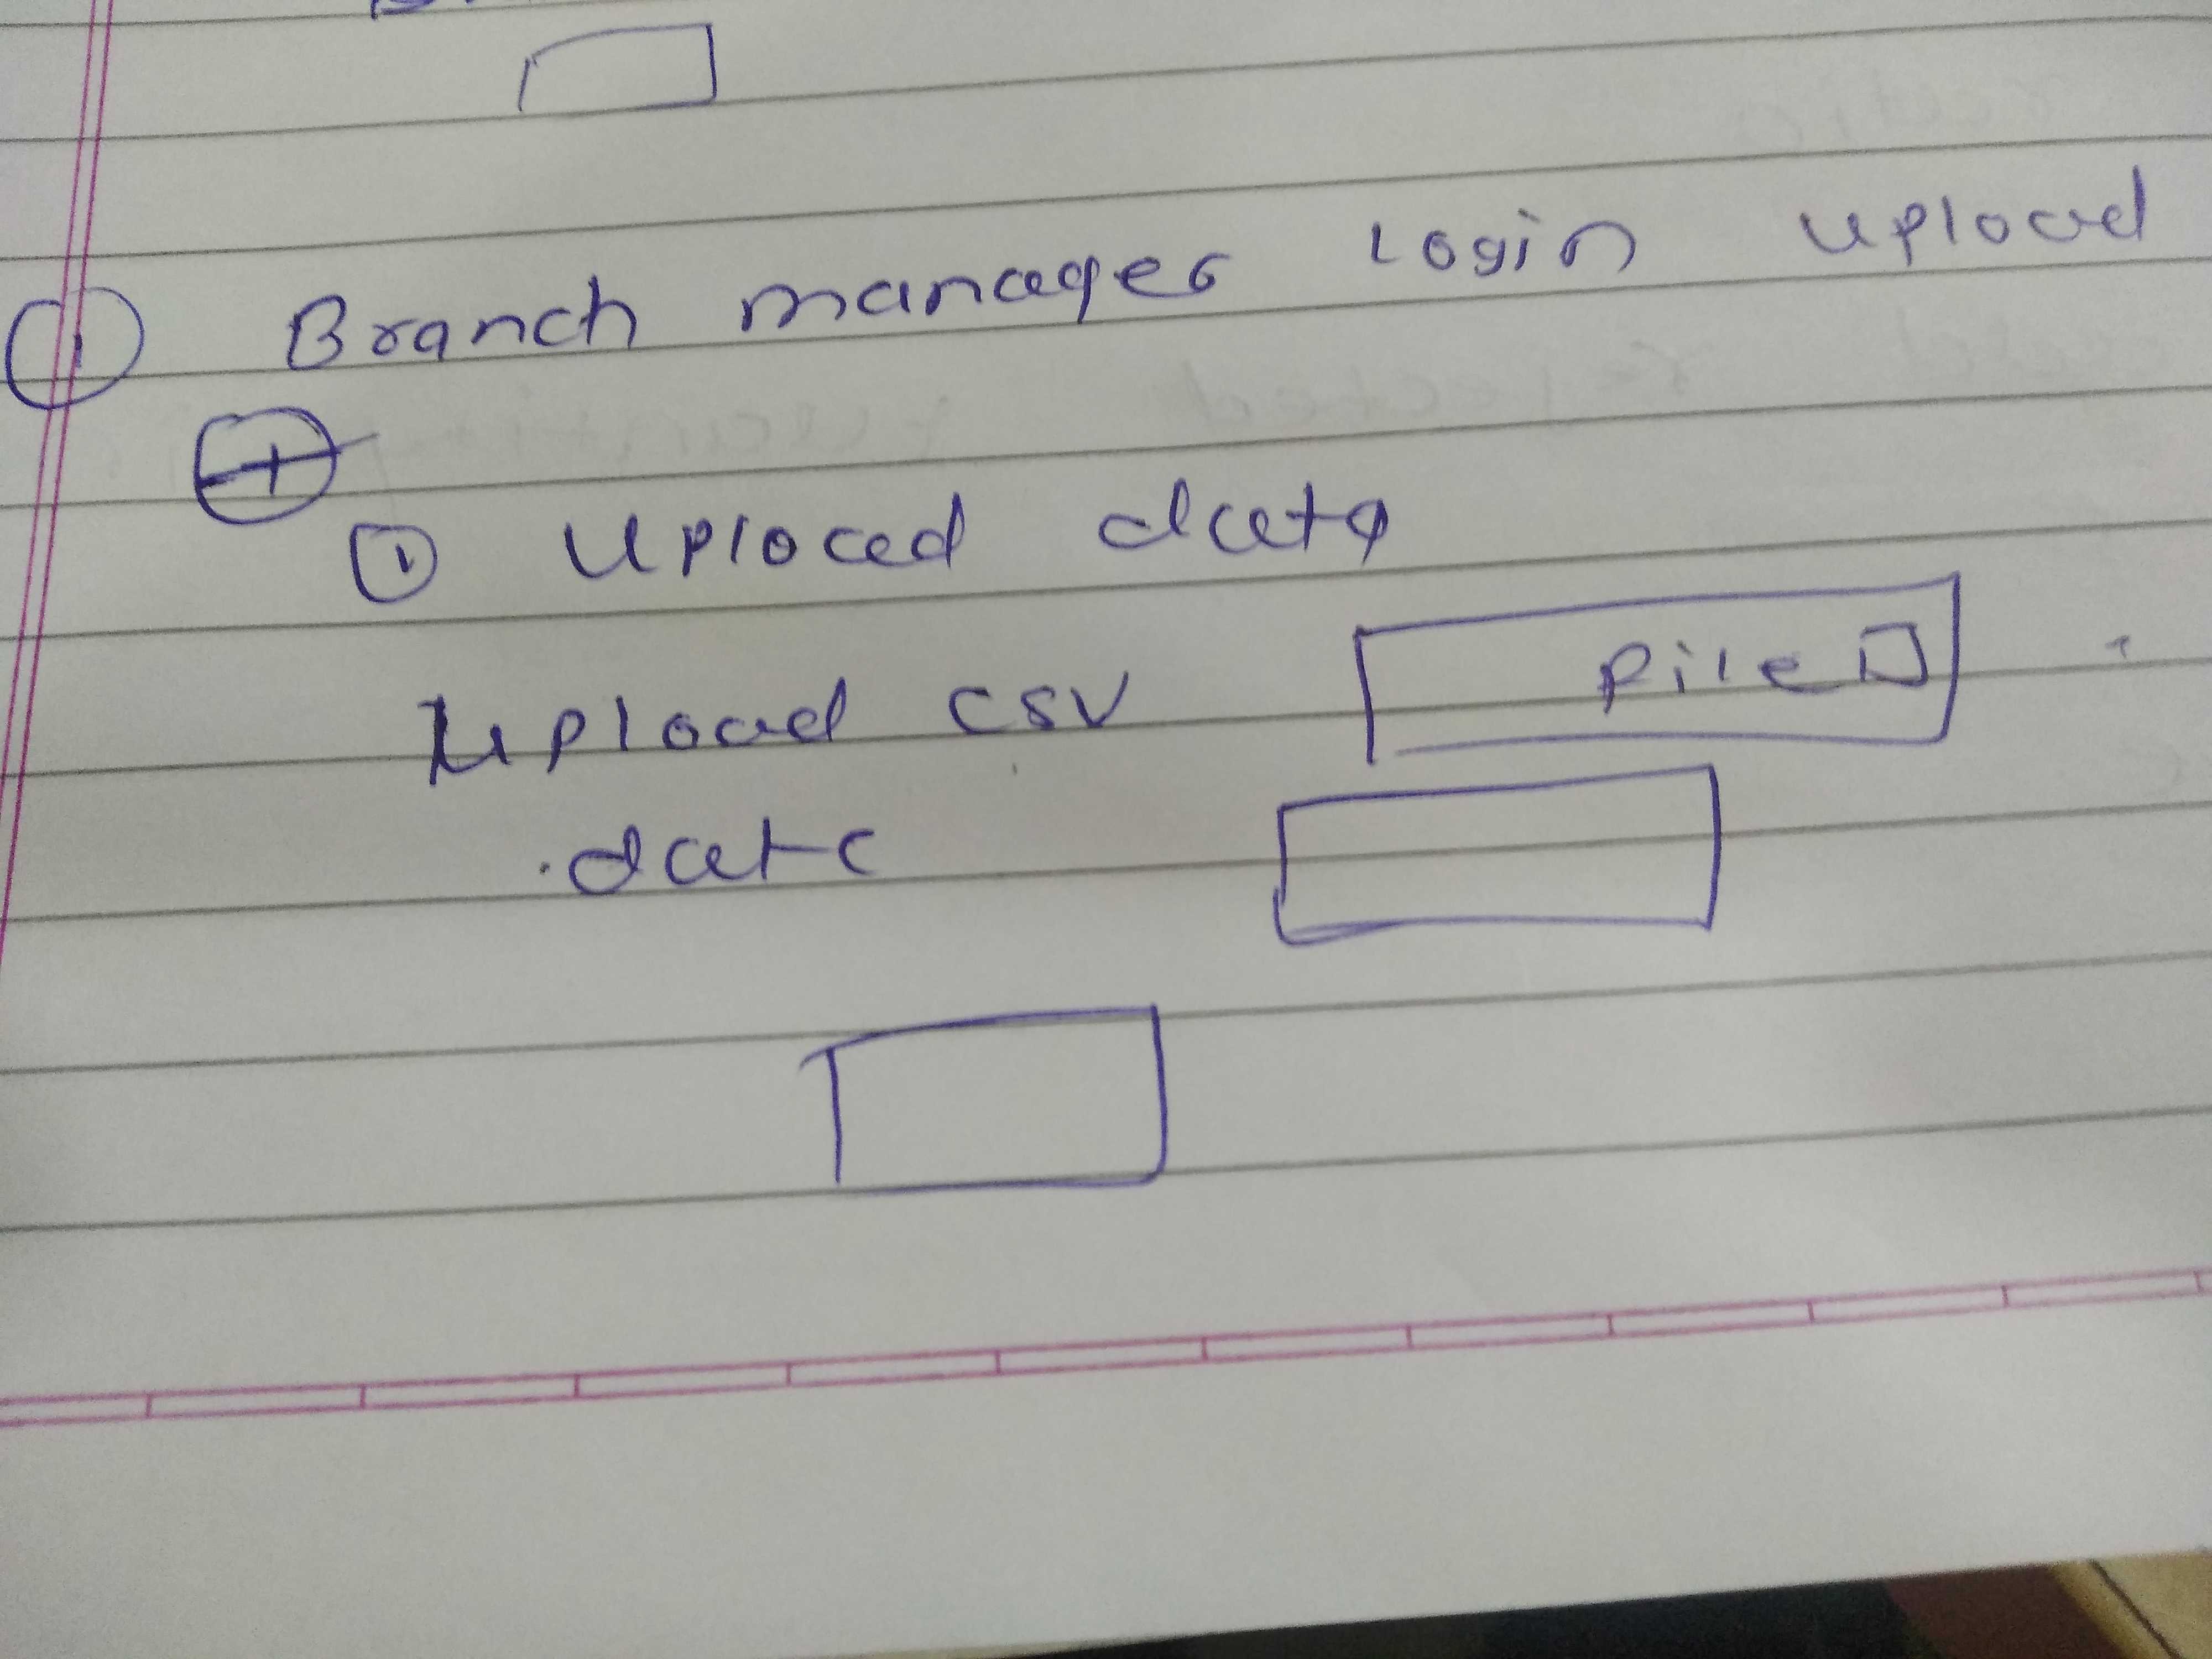 ① Branch manager Login upload
① Upload data
Upload csv File
date